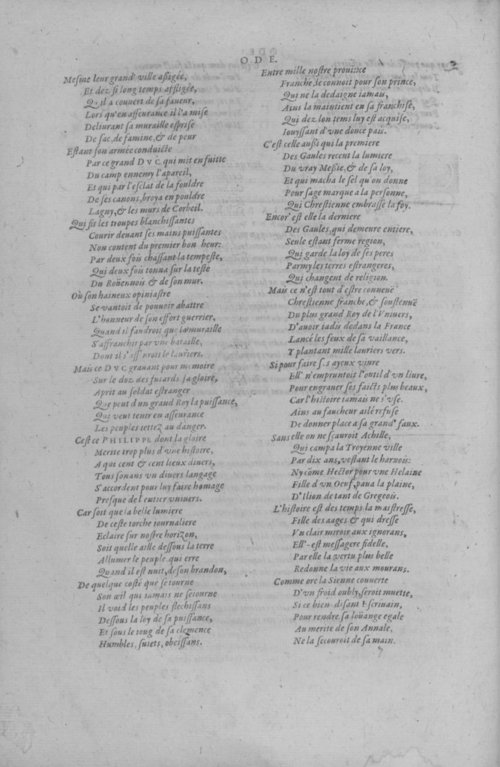 ODE.
2
Mesme leur grand' ville assigée,
Et dez si long temps affligée,
Qu'il a couvert de sa faueur,
Lors qu'en asseurance il l'a mise
Deliurant sa muraille esprise
De sac, de famine, & de peur
Estant son armée conduicte
Par ce grand DVC, qui mit en fuitte
Du camp ennemy l'apareil,
Et qui par l'esclat de la fouldre
De ses canons, broya en pouldre
Lagny, & les murs de Corbeil.
Qui fit les troupes blanchissantes
Courir deuant ses mains puissantes
Non content du premier bon heur:
Par deux fois chassant la tempeste,
Qui deux fois tonna sur la teste
Du Roüennois & de son mur.
Où son haineux opiniastre
Se vantoit de pouuoir abattre
L'honneur de son effort guerrier,
Quand il faudroit que la muraille
S'affranchit par vne bataille,
Dont il s'offroit le laurier.
Mais ce DVC grauant pour memoire
Sur le doz des fuiards sa gloire,
Aprit au soldat estranger
Que peut d'un grand Roy la puissance,
Qui veut tenir en asseurance
Les peuples iettez au danger.
C'est ce PHILIPPE dont la gloire
Merite trop plus d'vne histoire,
A qui cent & cent lieux diuers,
Tous sonans vn diuers langage
S'accordent pour luy faire homage
Presque de l'entier vniuers.
Car soit que la belle lumiere
De ceste torche iournaliere
Eclaire sur nostre horizon,
Soit quelle aille dessous la terre
Allumer le peuple qui erre
Quand il est nuit, de son brandon,
De quelque costé que se tourne
Son œil qui iamais ne seiourne
Il void les peuples flechissans
Dessous la loy de sa puissance,
Et sous le ioug de sa clemence
Humbles, suiets, obeissans.
Entre mille nostre prouince
Franche, le connoit pour son prince,
Qui ne la dedaigne iamais,
Ains la maintient en sa franchise,
Qui dez lon tems luy est acquise,
Iouyssant d'vne douce paix.
C'est celle aussi qui la premiere
Des Gaules recent la lumiere
Du vray Messie, & de sa loy,
Et qui macha le sel qu'on donne
Pour sage marque a la personne,
Qui Chrestienne embrasse la foy.
Encor' est elle la derniere
Des Gaules, qui demeure entiere,
Seule estant ferme region,
Qui garde la loy de ses peres
Parmy les terres estrangeres,
Qui changent de religion.
Mais ce n'est tout d'estre connuë
Chrestienne franche, & soustenuë
Du plus grand Roy de l'Vniuers,
D'auoir iadis dedans la France
Lancé les feux de sa vaillance,
Y plantant mille lauriers vers.
Si pour faire ses ayeux viure
Ell' n'empruntoit l'outil d'vn liure,
Pour engrauer ses faicts plus beaux,
Car l'histoire iamais ne s'vse.
Ains au faucheur ailé refuse
De donner place a sa grand' faux.
Sans elle on ne sçauroit Achille,
Qui campa la Troyenne ville
Par dix ans, vestant le harnois:
Ny côme Hector pour vne Helaine
Fille d'vn Oeuf, paua la plaine,
D'Ilion de tant de Gregeois.
L'histoire est des temps la maistresse,
Fille des aages & qui dresse
Vn clair miroir aux ignorans,
Ell'-est messagere fidelle,
Par elle la vertu plus belle
Redonne la vie aux mourans.
Comme ore la Sienne couuerte
D'vn froid oubly, seroit muette,
Si ce bien-disant Escriuain,
Pour rendre sa loüange egale
Au merite de son Annale,
Ne la secouroit de sa main.